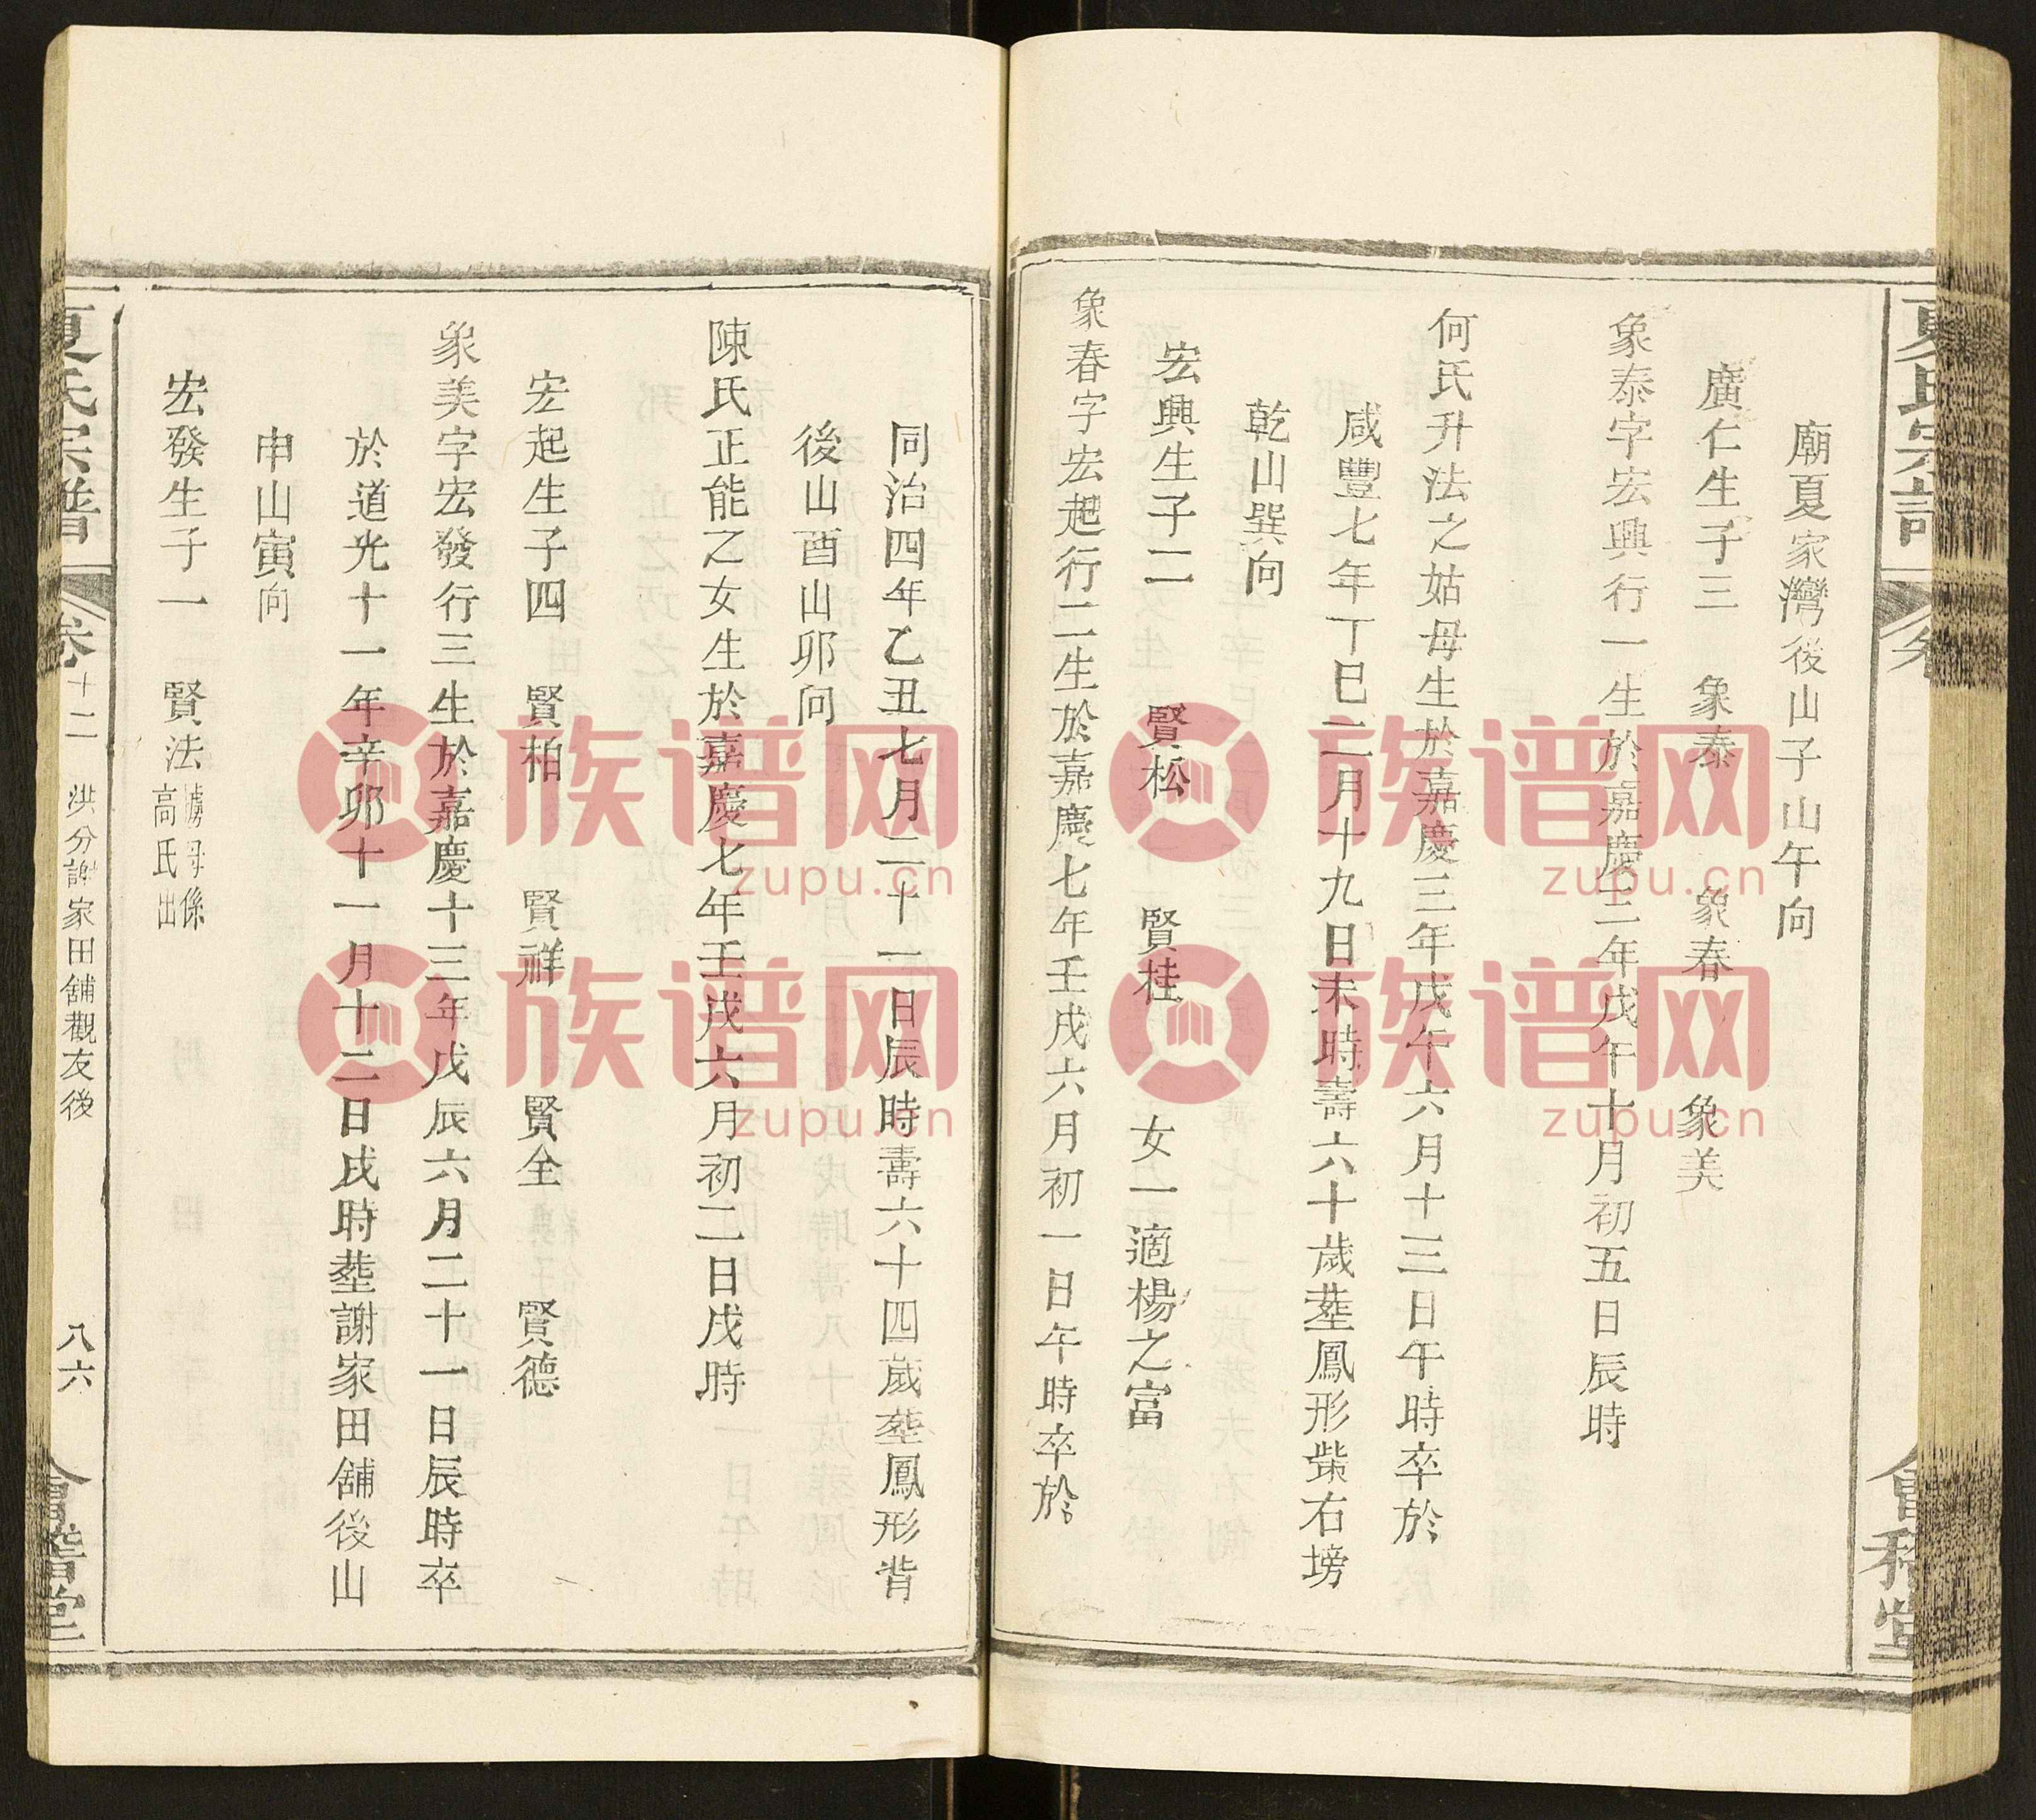 廟夏家灣後山子山午向
廣仁生子三 象泰 象春 象美
象泰字宏興行一生於嘉慶三年戊午十月初五日辰時
何氏升法之姑母生於嘉慶三年戊午六月十三日午時卒於
咸豐七年丁巳二月十九日未時壽六十歲塟鳳形柴右塝
乾山巽向
宏興生子二 賢松 賢桂 女一適楊之富
象春字宏起行二生於嘉慶七年壬戌六月初一日午時卒於
同治四年乙丑七月二十一日辰時壽六十四歲塟鳳形背
後山酉山卯向
陳氏正能之女生於嘉慶七年壬戌六月初二日戌時
宏起生子四 賢柏 賢祥 賢全 賢德
象美字宏發行三生於嘉慶十三年戊辰六月二十一日辰時卒
於道光十一年辛卯十一月十二日戌時塟謝家田舖後山
申山寅向
宏發生子一 賢法 嫡母係
高氏出
夏氏宗譜 卷十二 洪分謝家田舖觀友後 八六 會稽堂
族谱网
zupu.cn
族谱网
zupu.cn
族谱网
zupu.cn
族谱网
zupu.cn